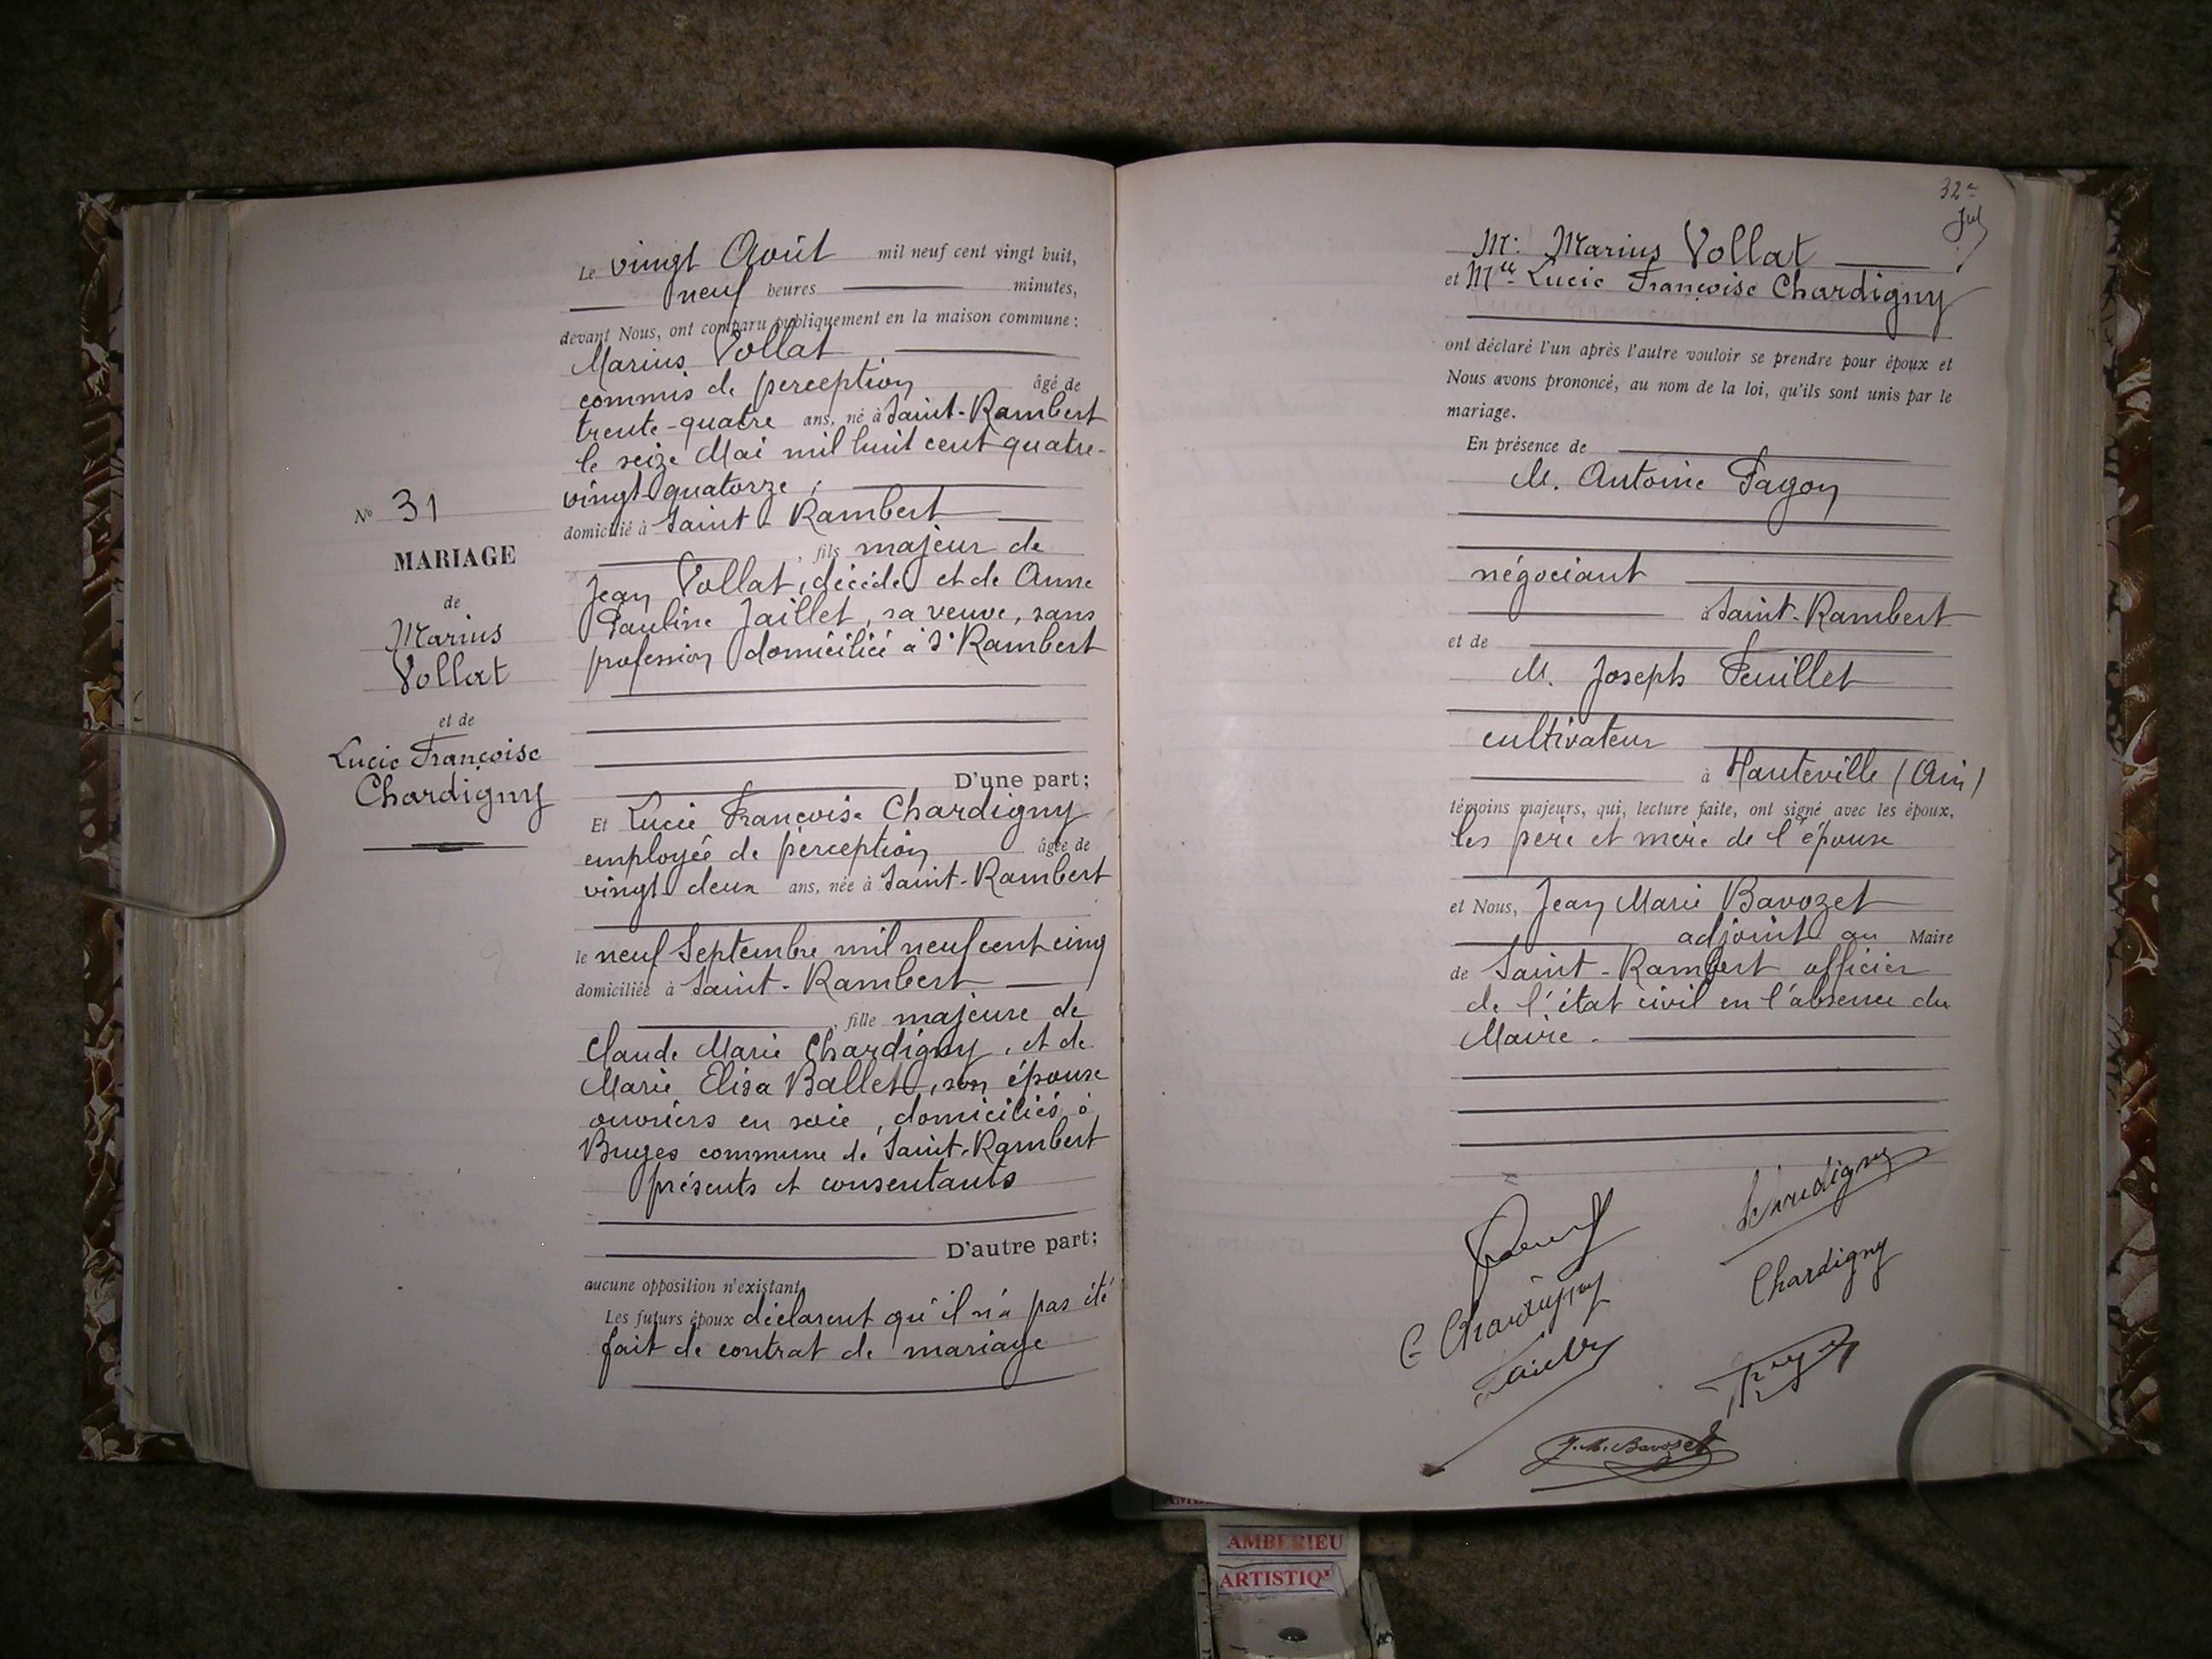 Le vingt Août mil neuf cent vingt huit,
neuf heures minutes,
devant Nous, ont comparu publiquement en la maison commune :
Marius Vollat
commis de perception âgé de
trente-quatre ans, né à Saint-Rambert
le seize Mai mil huit cent quatre-
vingt-quatorze ;
domicilié à Saint-Rambert
, fils majeur de
Jean Vollat, décédé et de Anne
Pauline Jaillet, sa veuve, sans
profession domiciliée à St Rambert
D'une part;
Et Lucie Françoise Chardigny
employée de perception âgée de
vingt deux ans, née à Saint-Rambert
le neuf Septembre mil neuf cent cinq
domiciliée à Saint-Rambert
, fille majeure de
Claude Marie Chardigny, et de
Marie Elisa Ballet, son épouse
ouvriers en soie, domiciliés à
Buges commune de Saint-Rambert
présents et consentants
D'autre part;
aucune opposition n'existant,
Les futurs époux déclarent qu'il n'a pas été
fait de contrat de mariage
No 31
MARIAGE
de
Marius
Vollat
et de
Lucie Françoise
Chardigny
32e
M: Marius Vollat
et Mlle Lucie Françoise Chardigny
ont déclaré l'un après l'autre vouloir se prendre pour époux et
Nous avons prononcé, au nom de la loi, qu'ils sont unis par le
mariage.
En présence de
M. Antoine Pagon
négociant
à Saint-Rambert
et de
M. Joseph Feuillet
cultivateur
à Hauteville (Ain)
témoins majeurs, qui, lecture faite, ont signé avec les époux,
les père et mère de l'épouse
et Nous, Jean Marie Bavozet
adjoint au Maire
de Saint-Rambert officier
de l'état civil en l'absence du
Maire.
Chardigny
C Chardigny
J. M. Bavozet
AMBERIEU
ARTISTIQ